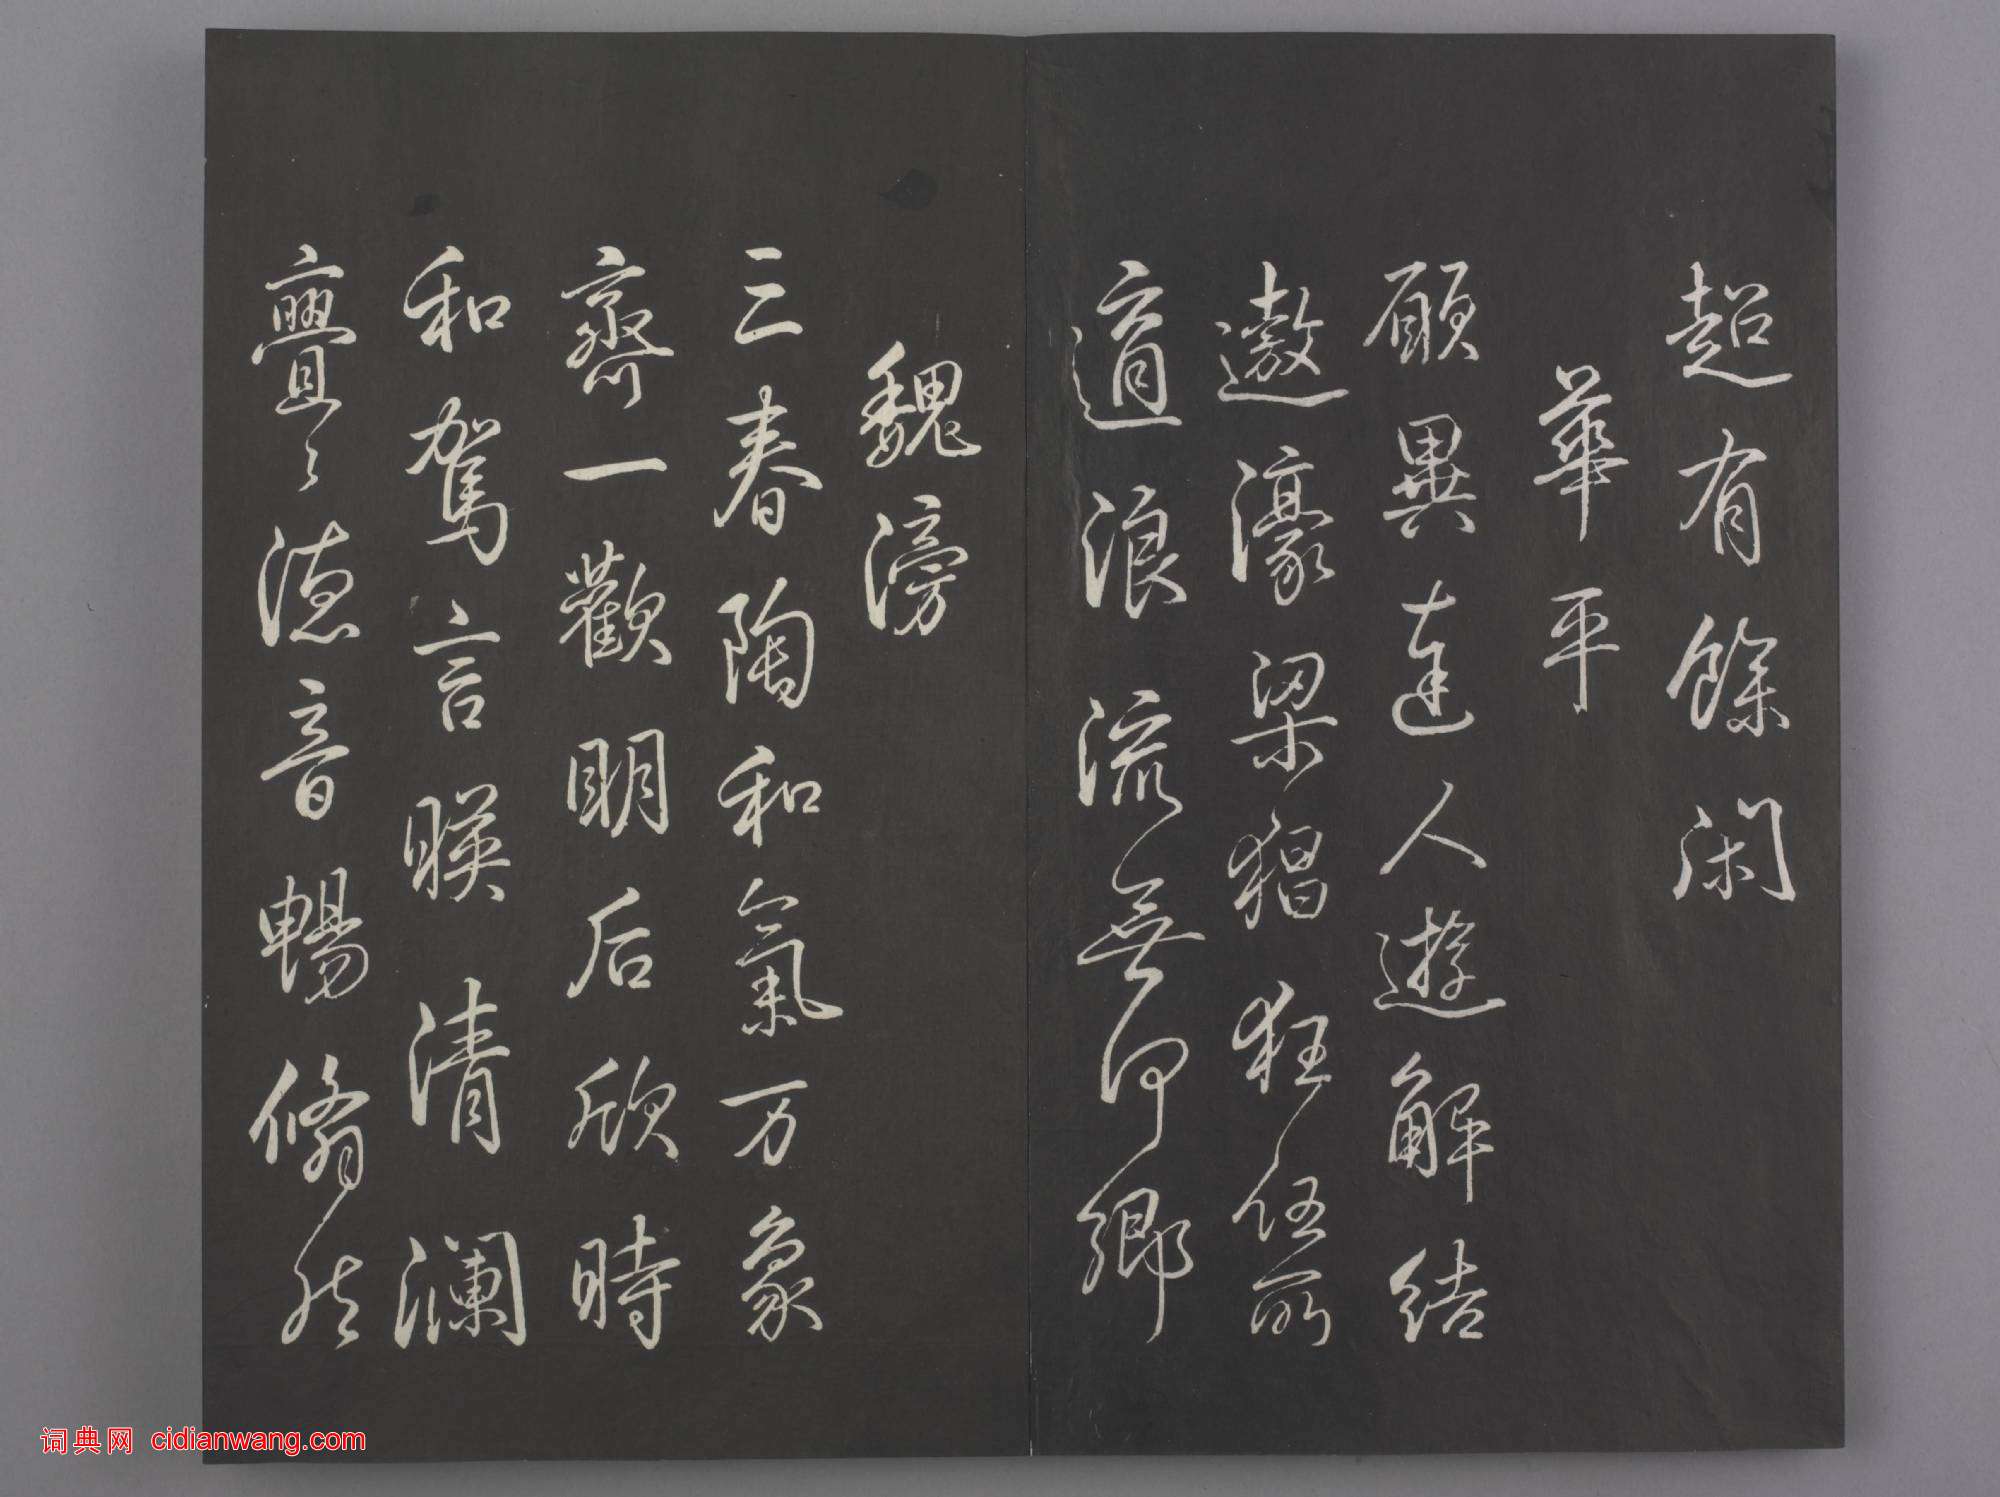 超有餘閑
華平
願異達人遊解結
遨濠梁猖狂任所
適浪流無何鄉
魏滂
三春陶和氣万象
齊一歡明后欣時
和駕言暎清瀾
亹〻德音暢翛然
词典网 cidianwang.com